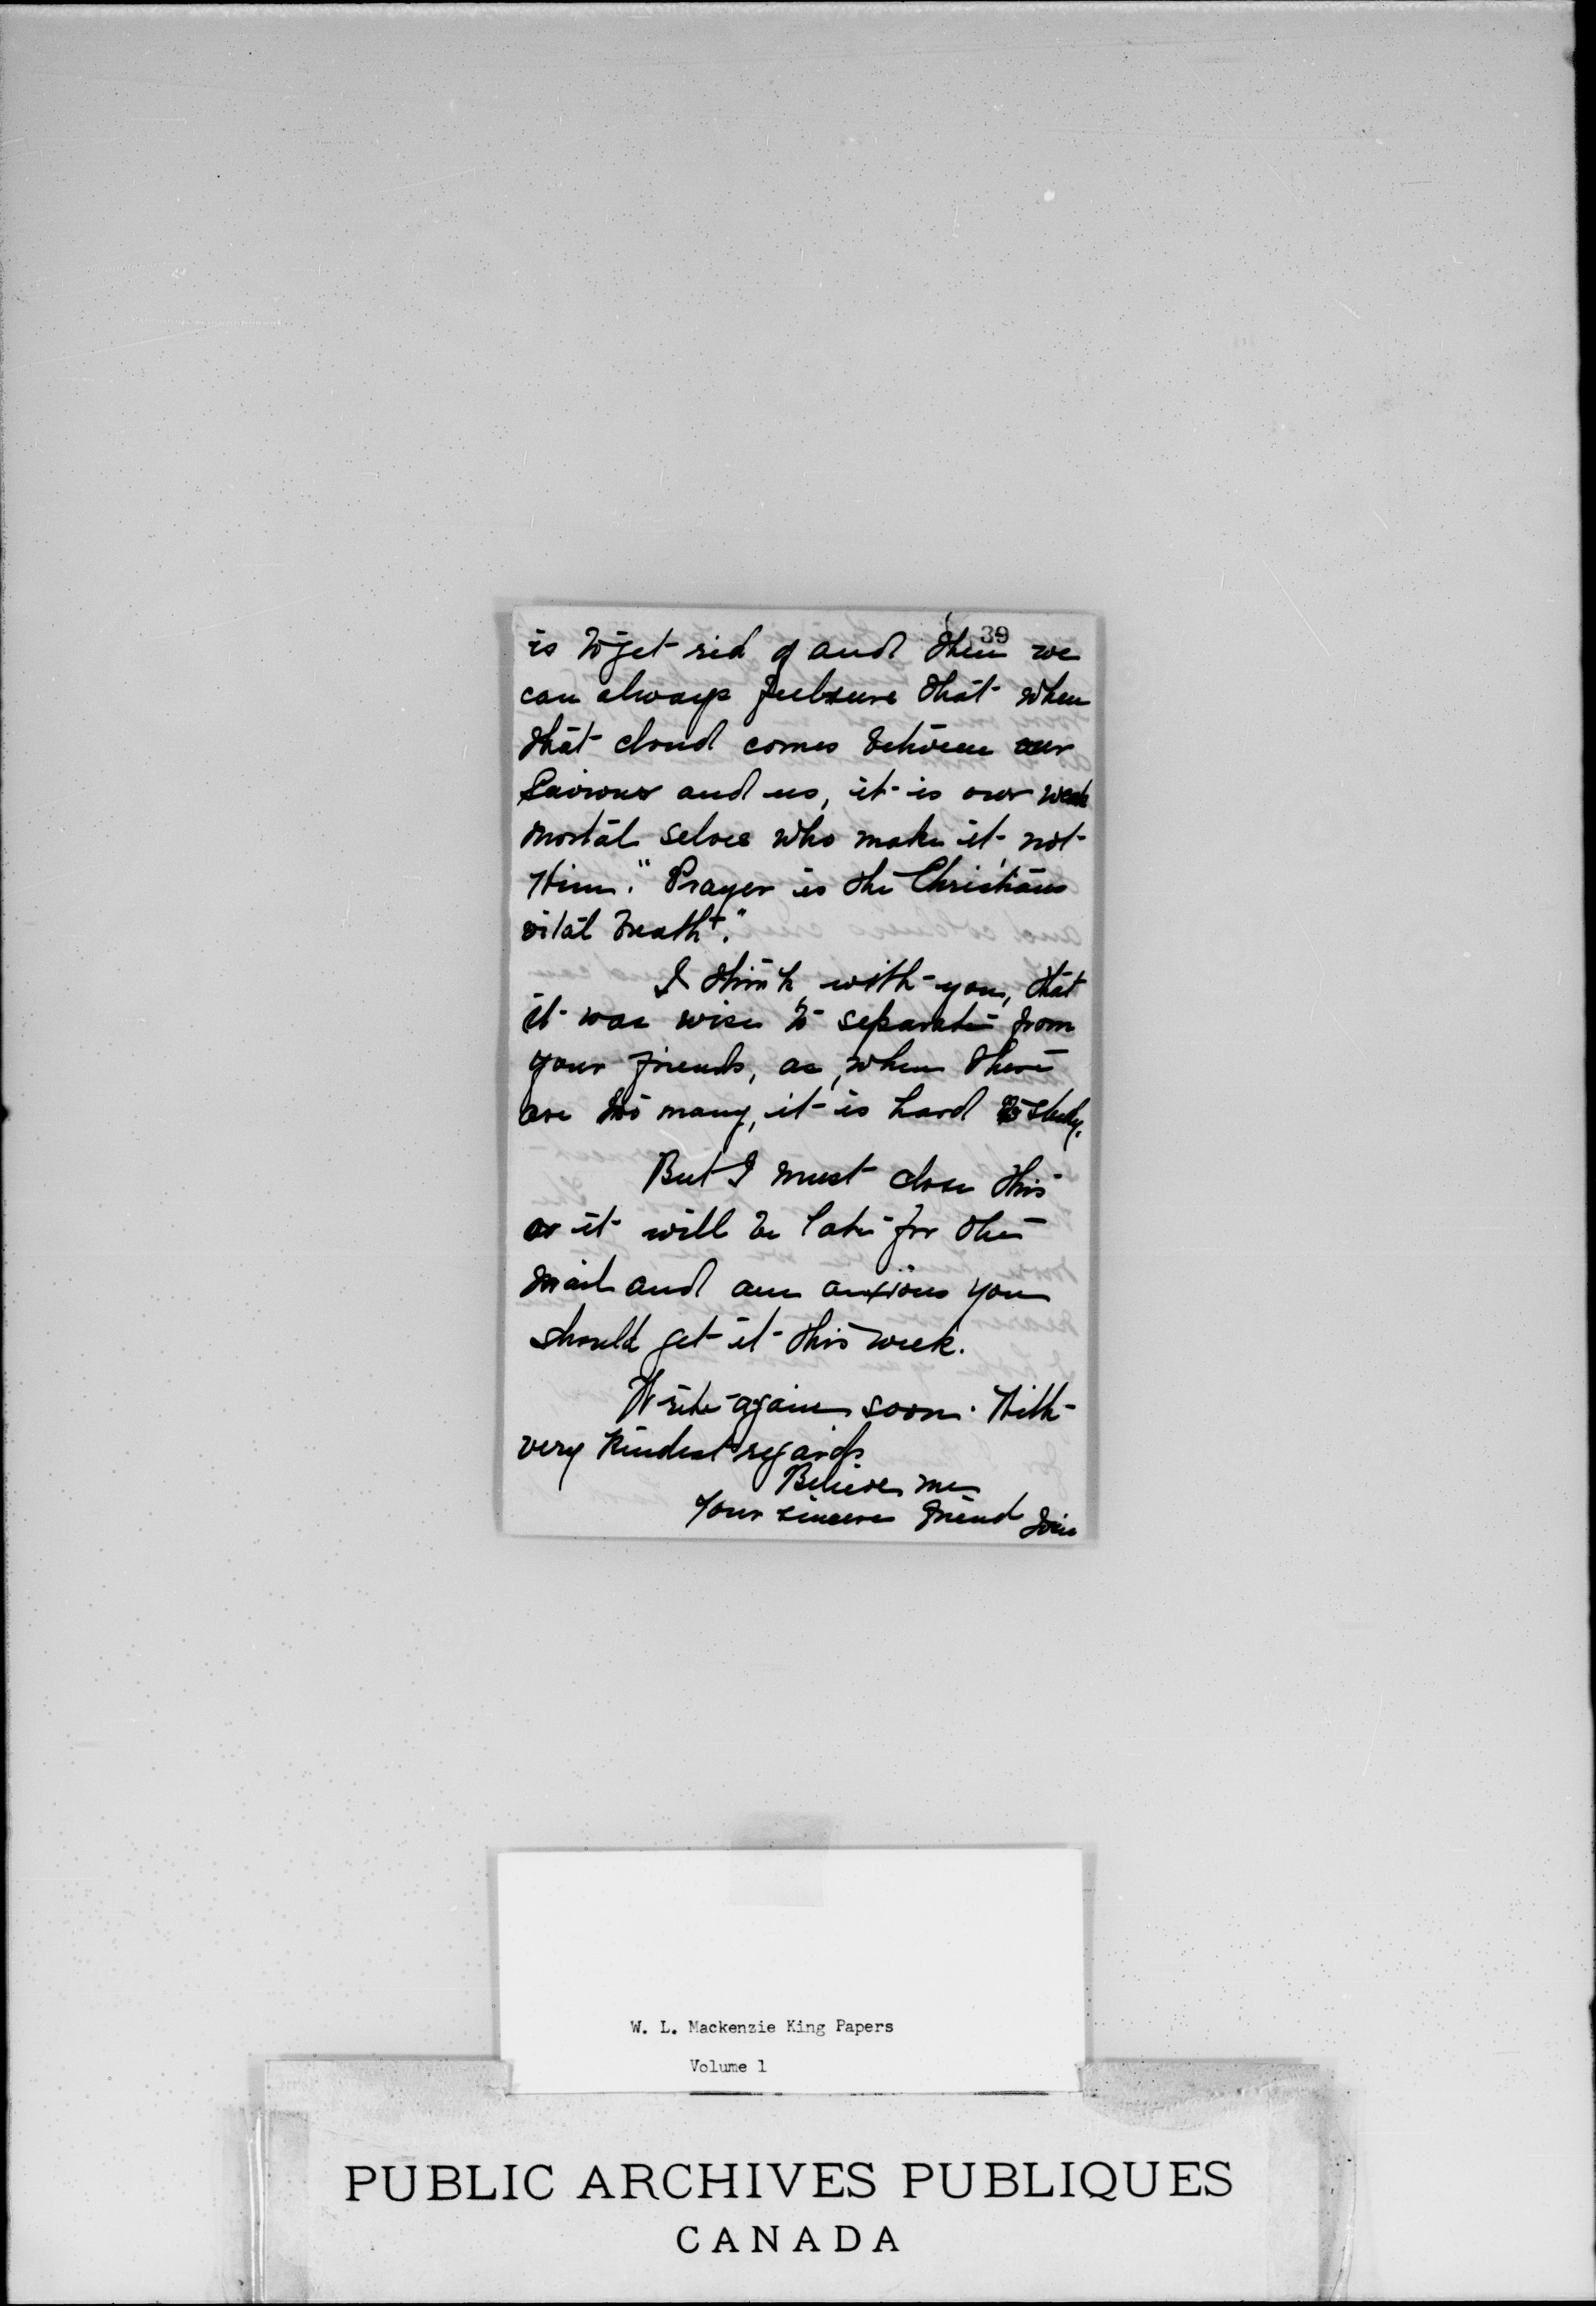 39
is to get rid of and then we
can always feel sure that when
that cloud comes between our
Saviour and us, it is our weak
mortal selves who make it not
Him. "Prayer is the Christian's
vital breath."
I think with you, that
it was wise to separate from
your friends, as, when there
are too many, it is hard to study.
But I must close this
or it will be late for the
mail and am anxious you
should get it this week.
Write again soon. With
very kindest regards
Believe me
Your sincere friend
W. L. Mackenzie King Papers
Volume 1
PUBLIC ARCHIVES PUBLIQUES
CANADA